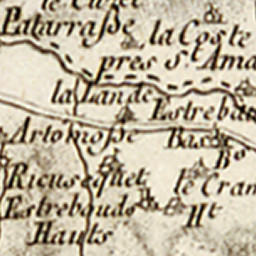 le Curet
Patarraſse
la Coste
pres St. Ama
la Lande
Estrebau
Artomoſse
Bas
Bo
Ricusequet
le Cram
Estrebauds
Ht
Hauts